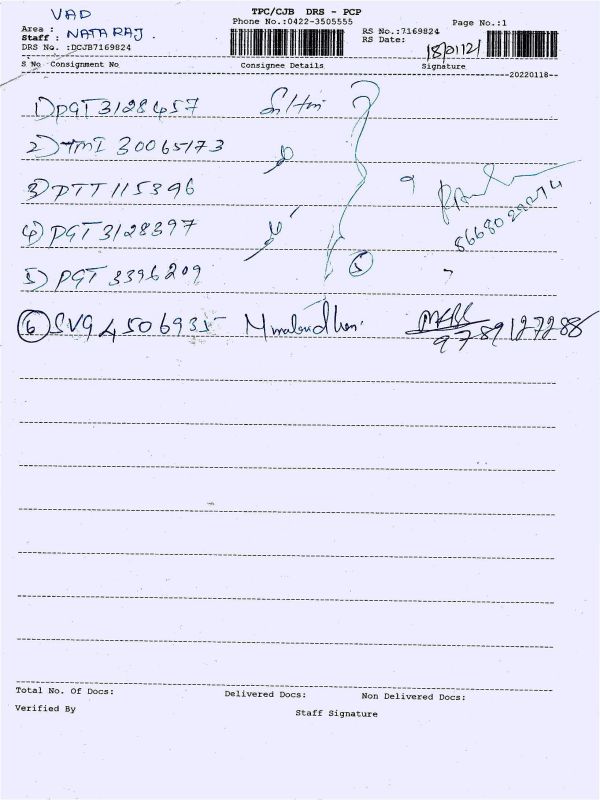 VAD
TPC/CJB DRS - PCP
Phone No.:0422-3505555
Page No.:1
Area :
Staff : NATARAJ.
DRS No. :DCJB7169824
RS No.:7169824
RS Date: 18/01/21
S No Consignment No Consignee Details Signature
--20220118--
1) PGT 3128457
2) TMI 30065173
3) PTT 115396
4) PGT 3128397
8668029274
5
5) PGT 3396209
6 SVG 4506935
9789127288
Total No. Of Docs: Delivered Docs: Non Delivered Docs:
Verified By Staff Signature